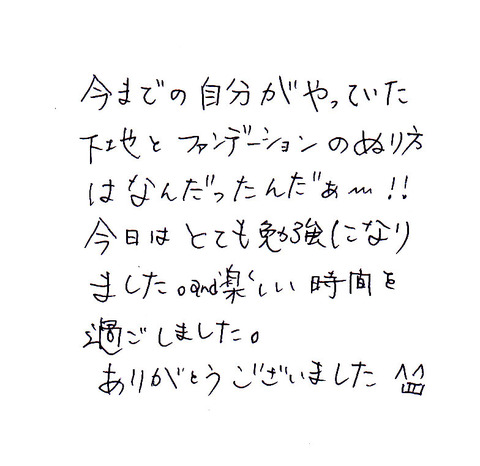 今までの自分がやっていた
下地とファンデーションのぬり方
はなんだったんだぁ〜!!
今日はとても勉強になり
ました。and楽しい時間を
過ごしました。
ありがとうございました ^皿^